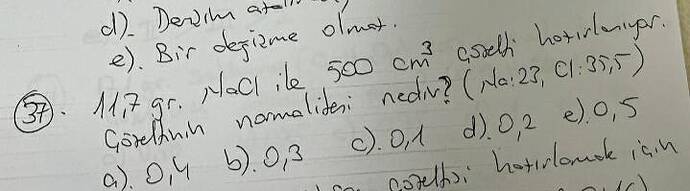 d). Derişim
e). Bir değişme olmaz.
37. 11,7 gr. NaCl ile 500 cm³ çözelti hazırlanıyor.
Çözeltinin normalitesi nedir? (Na:23, Cl:35,5)
a). 0,4 b). 0,3 c). 0,1 d). 0,2 e). 0,5
çözeltisi hazırlamak için